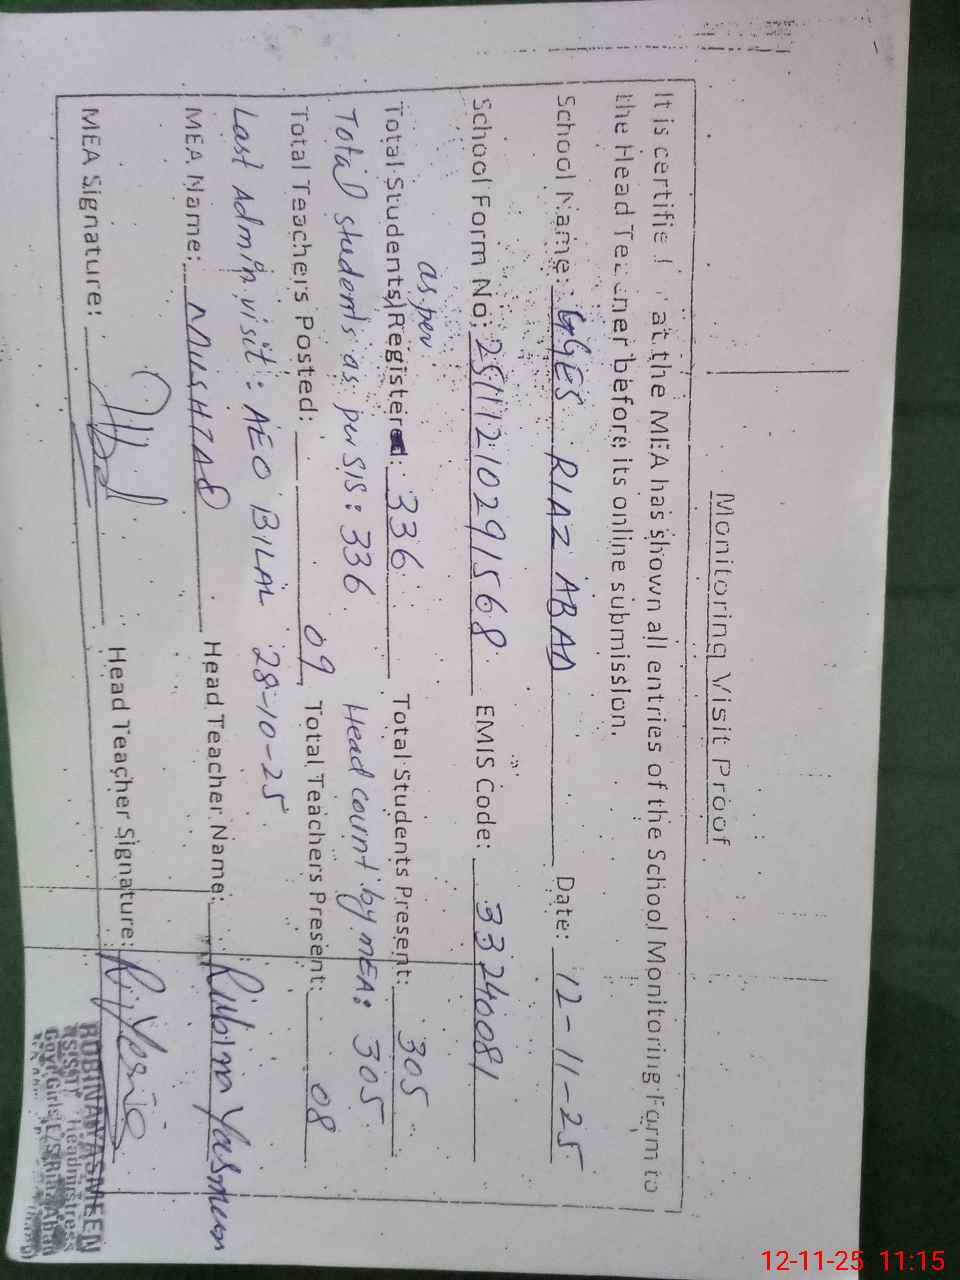 Monitoring Visit Proof
It is certifie at the MEA has shown all entries of the School Monitoring Form to
the Head Teacher before its online submission.
School Name: GGES RIAZ ABAD Date: 12-11-25
School Form No: 25111210291568 EMIS Code: 33240081
as per
Total Students Registered: 336 Total Students Present: 305
Total students as per SIS: 336 Head count by MEA: 305
Total Teachers Posted: 09 Total Teachers Present: 08
Last Admin visit: AEO BILAL 28-10-25
MEA Name: MUSHTAQ Head Teacher Name: Rubina Yasmeen
MEA Signature: Head Teacher Signature:
ROBINA YASMEEN
Headmistress
Govt. Girls E/S Riaz Abad
12-11-25 11:15